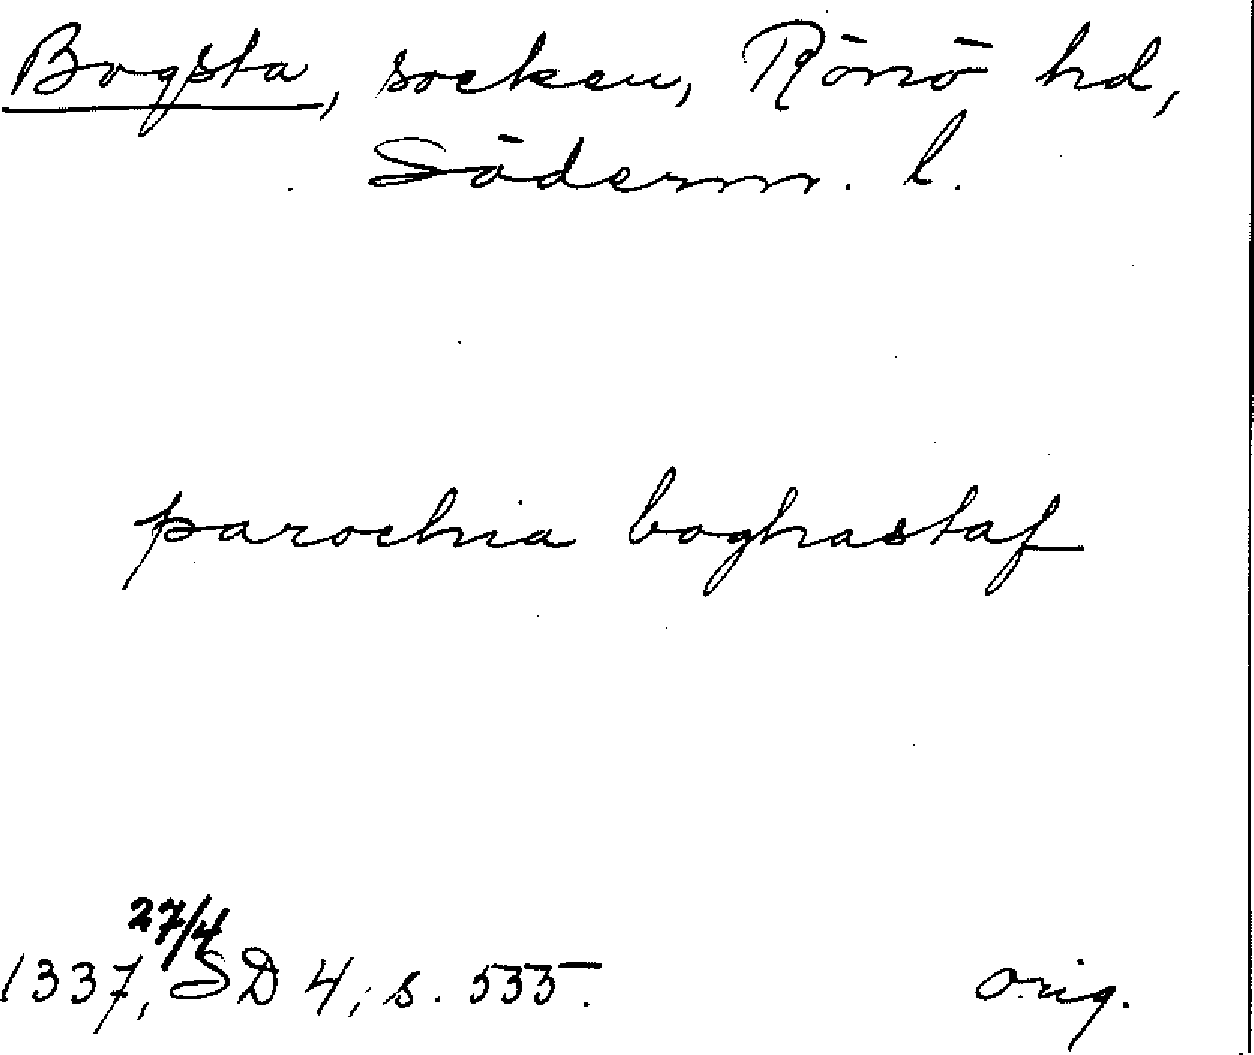 Bogsta, socken, Rönö hd,
Söderm. l.
parochia boghastaf
27/4
1337, SD 4, s. 535. orig.